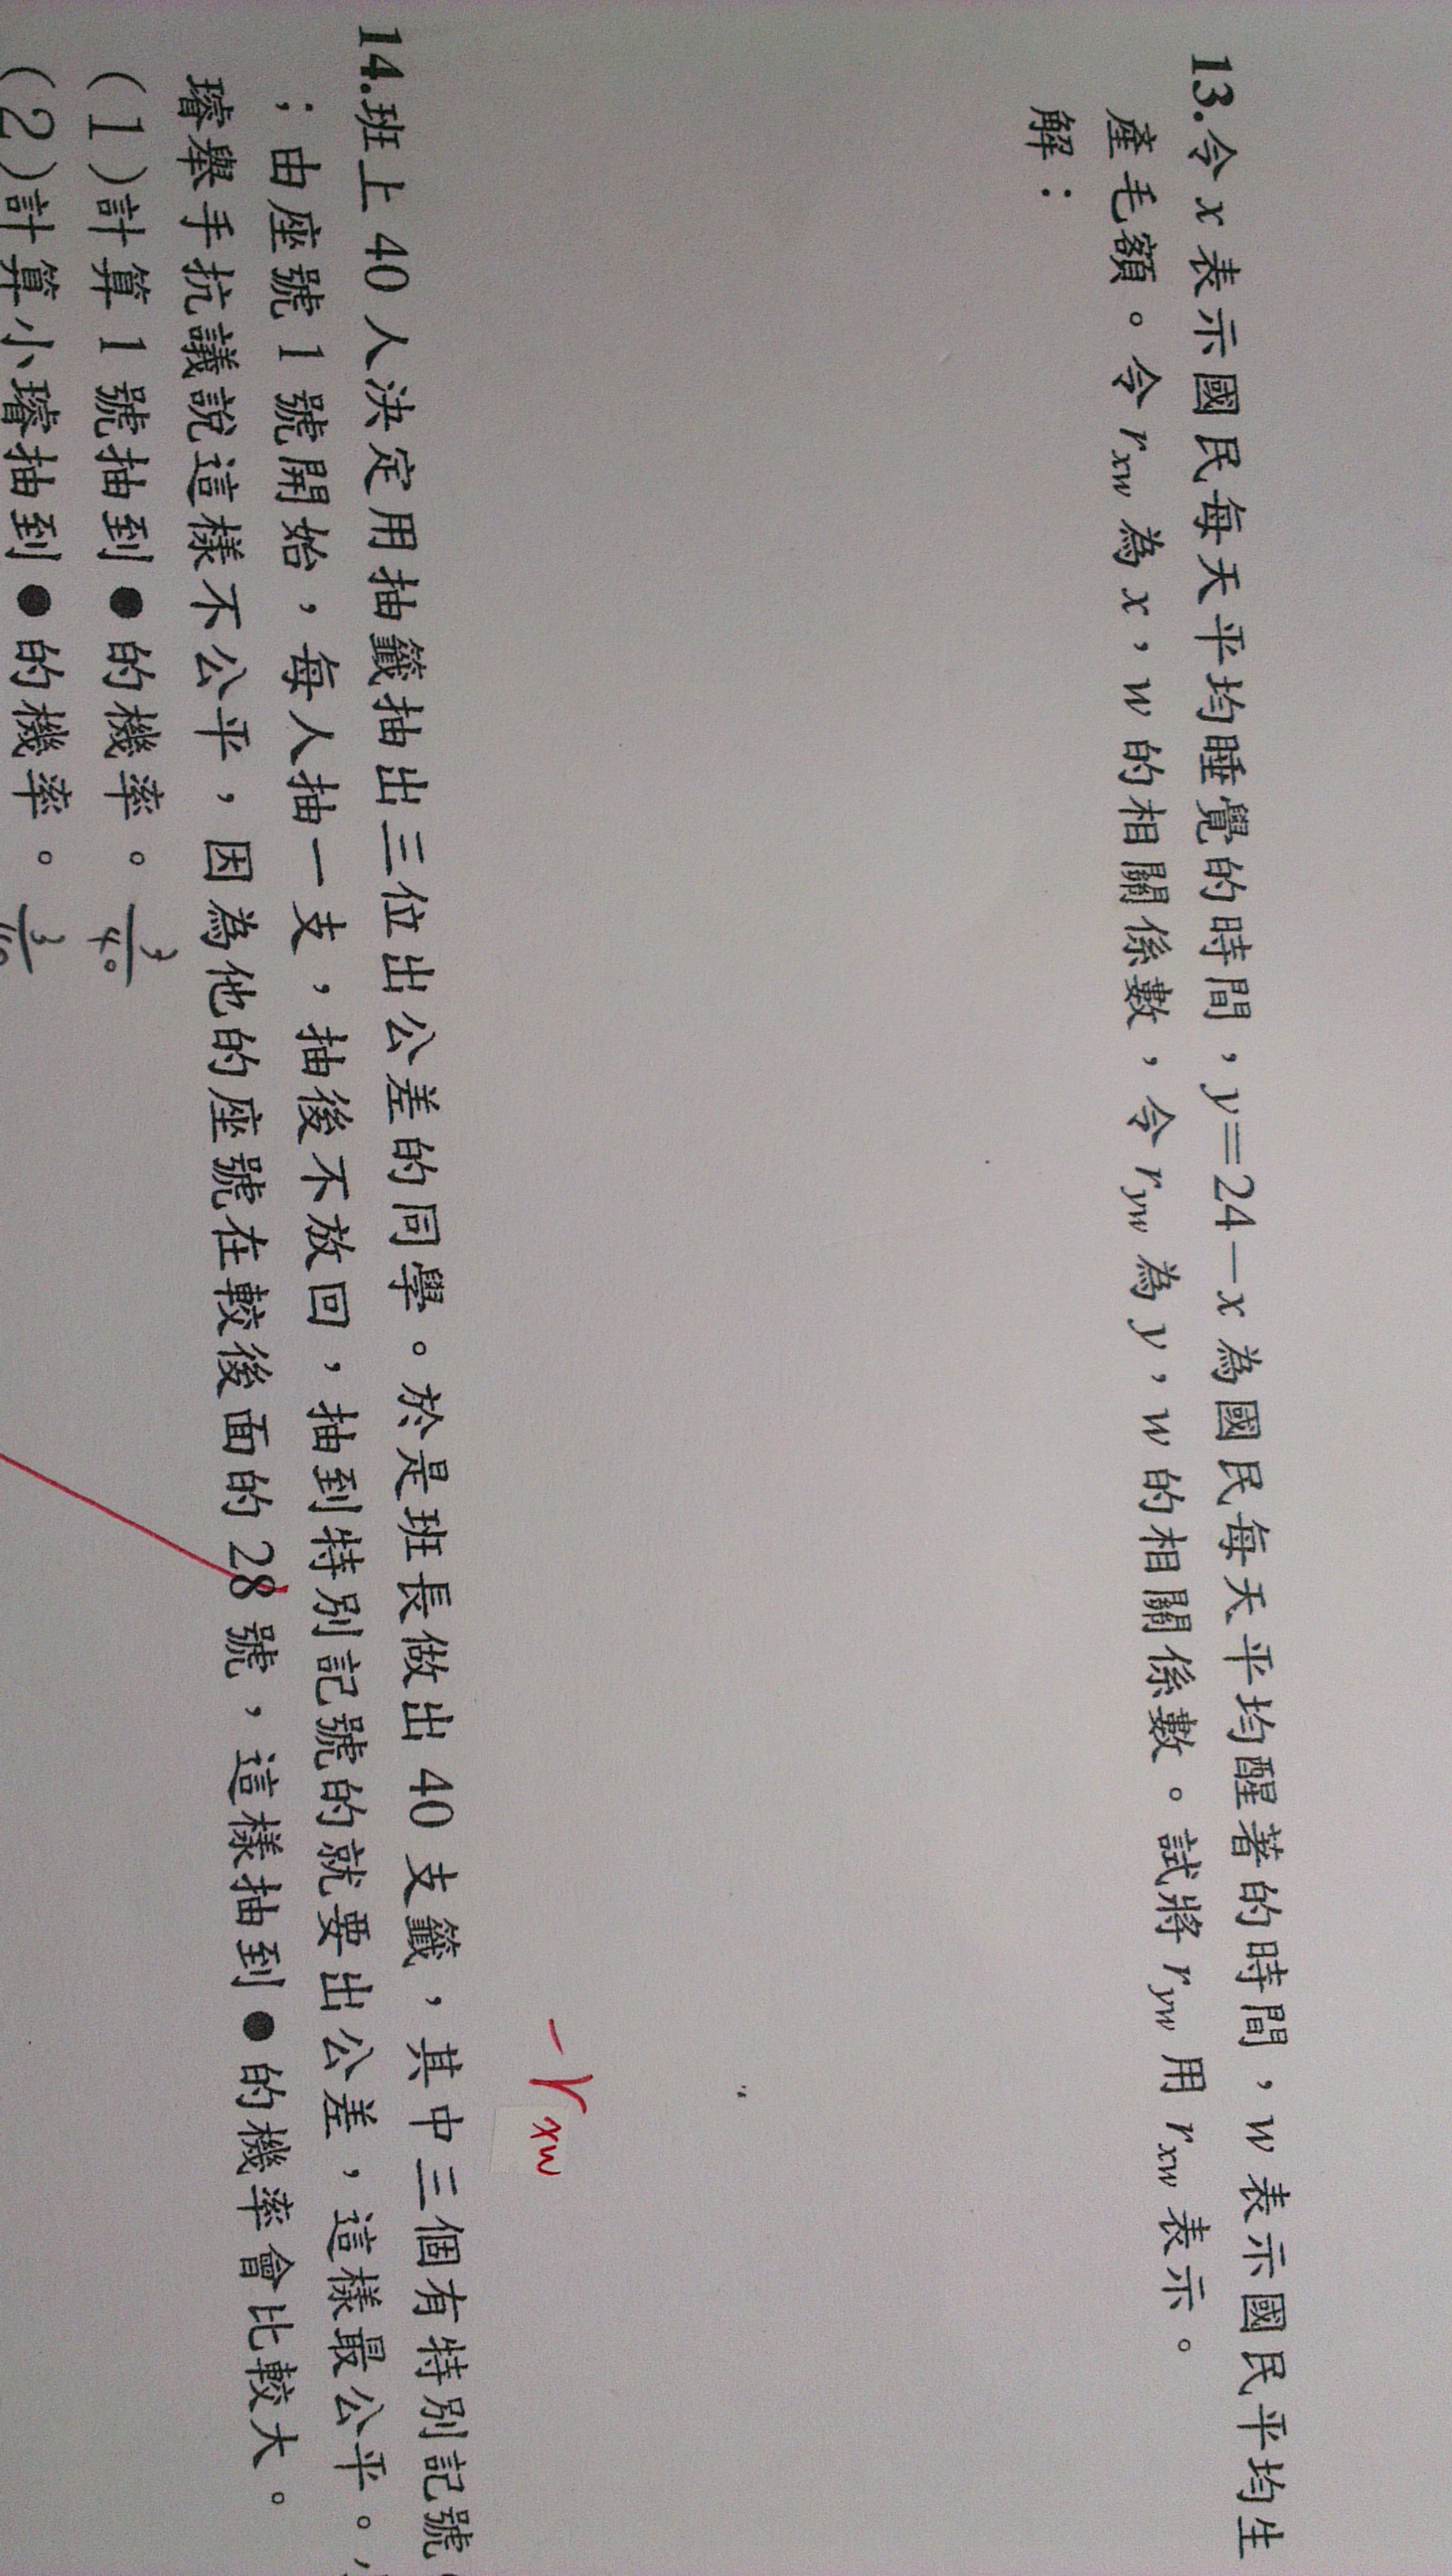 13.令 x 表示國民每天平均睡覺的時間，y=24－x 為國民每天平均醒著的時間，w 表示國民平均生
產毛額。令 rxw 為 x，w 的相關係數，令 ryw 為 y，w 的相關係數。試將 ryw 用 rxw 表示。
解：
－rxw
14.班上 40 人決定用抽籤抽出三位出公差的同學。於是班長做出 40 支籤，其中三個有特別記號
；由座號 1 號開始，每人抽一支，抽後不放回，抽到特別記號的就要出公差，這樣最公平。
璿舉手抗議說這樣不公平，因為他的座號在較後面的 28 號，這樣抽到●的機率會比較大。
(1)計算 1 號抽到●的機率。 3/40
(2)計算小璿抽到●的機率。 3/40